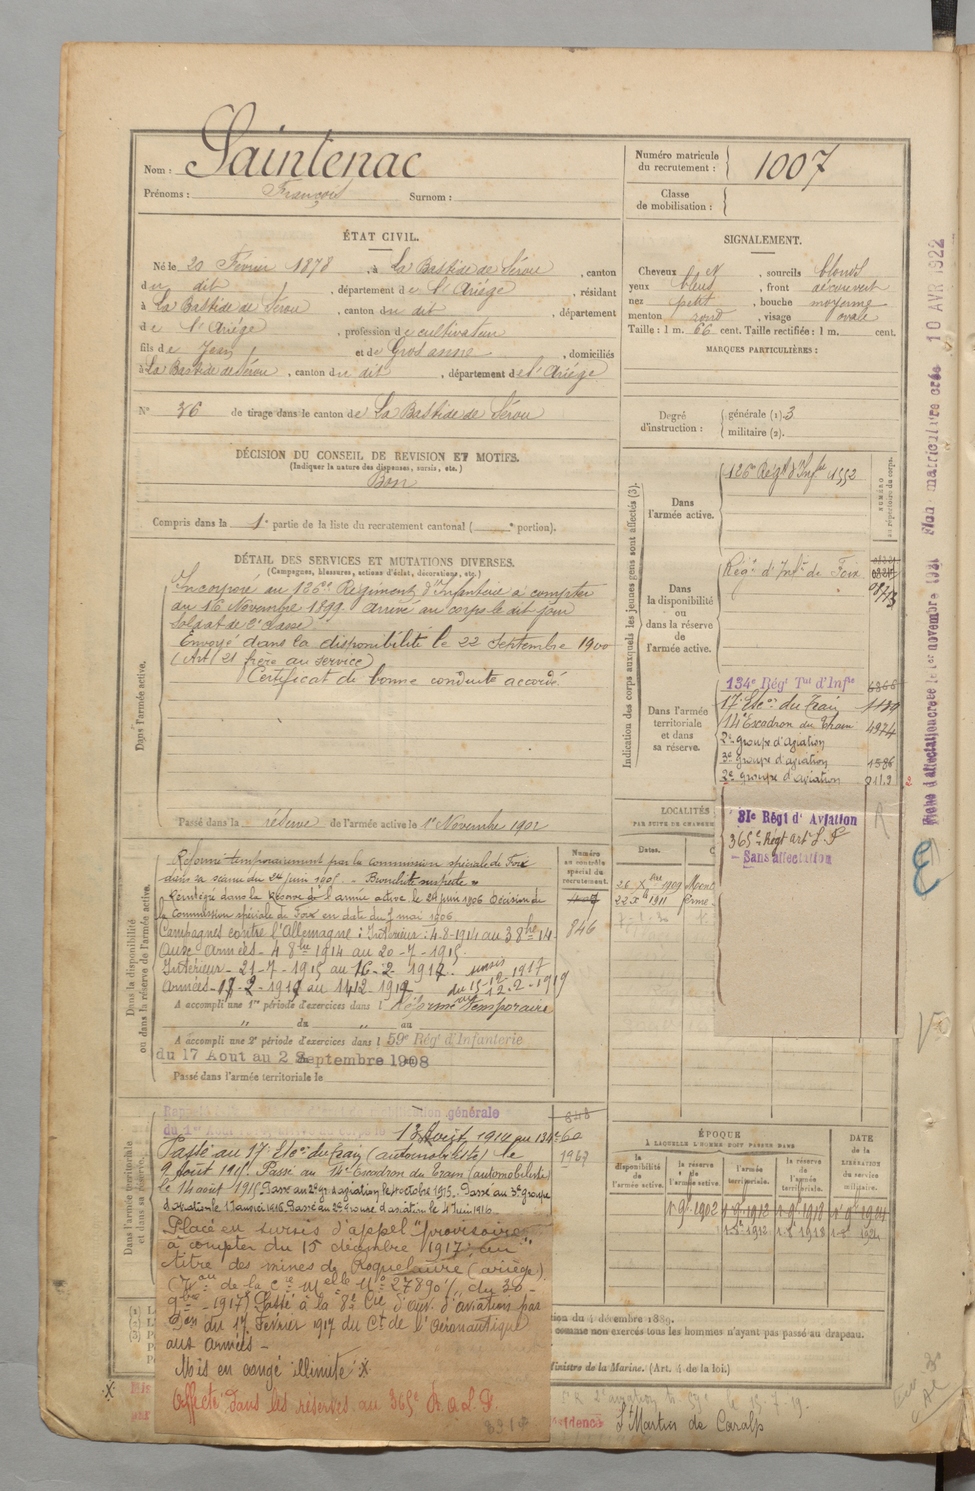 Nom : Saintenac
Prénoms : François Surnom :
Numéro matricule du recrutement : 1007
Classe de mobilisation :
ÉTAT CIVIL.
Né le 20 Février 1878, à La Bastide de Sérou, canton
du dit, département de l'Ariège, résidant
à La Bastide de Sérou, canton du dit, département
de l'Ariège, profession de cultivateur
fils de Jean et de , domiciliés
à La Bastide de Sérou, canton du dit, département de l'Ariège
N° 36 de tirage dans le canton de La Bastide de Sérou
SIGNALEMENT.
Cheveux , sourcils blonds
yeux bleus, front découvert
nez petit, bouche moyenne
menton rond, visage ovale
Taille : 1 m. 66 cent. Taille rectifiée : 1 m. cent.
MARQUES PARTICULIÈRES :
Degré d'instruction : générale (1). 3
militaire (2).
DÉCISION DU CONSEIL DE REVISION ET MOTIFS.
(Indiquer la nature des dispenses, sursis, etc.)
Bon
Compris dans la 1e partie de la liste du recrutement cantonal ( e portion).
DÉTAIL DES SERVICES ET MUTATIONS DIVERSES.
(Campagnes, blessures, actions d'éclat, décorations, etc.)
Dans l'armée active.
Incorporé au 126e Régiment d'Infanterie à compter
du 16 Novembre 1899. Arrivé au corps le dit jour
soldat de 2e classe
Envoyé dans la disponibilité le 22 Septembre 1900
(Art 21 frère au service)
Certificat de bonne conduite accordé
Passé dans la réserve de l'armée active le 1er Novembre 1902
Indication des corps auxquels les jeunes gens sont affectés (3).
Dans l'armée active.
126e Régt d'Infie 1552
NUMÉRO au répertoire du corps.
Dans la disponibilité ou dans la réserve de l'armée active.
Régt d'Infie de Foix
Dans l'armée territoriale et dans sa réserve.
134e Régt Tal d'Infie 6368
17e Escon du Train 1139
14e Escadron du Train 4924
2e groupe d'aviation
3e groupe d'aviation 1586
2e groupe d'aviation
31e Régt d'Aviation
365e Régt art L. P
Sans affectation
LOCALITÉS
Dates.
Dans la disponibilité ou dans la réserve de l'armée active.
Réformé temporairement par la commission spéciale de Foix
dans sa séance du 24 juin 1905. - Bronchite suspecte -
Réintégré dans la Réserve de l'armée active le 24 juin 1906 Décision de
la Commission spéciale de Foix en date du 7 mai 1906
Campagnes contre l'Allemagne : Intérieur : 4-8-1914 au 3 8bre 14
Aux Armées - 4 8bre 1914 au 20-7-1915
Intérieur - 21-7-1915 au 16-2-1917. sursis
Armées - 17-2-1917 au 14 12-1917 du 15-12-1917 au 12-2-1919
A accompli une 1re période d'exercices dans l Réformé temporaire
du au
A accompli une 2e période d'exercices dans l 59e Régt d'Infanterie
du 17 Aout au 2 Septembre 1908
Passé dans l'armée territoriale le
Numéro au contrôle spécial du recrutement.
846
Dans l'armée territoriale et dans sa réserve.
mobilisation générale
1914 au 134e
Passé au 17e Escon du train (automobiliste) le
9 Août 1915. Passé au 14e Escadron du Train (automobiliste)
le 14 août 1915 Passé au 2e gr. d'aviation le 1er octobre 1915. Passé au 3e groupe
d'aviation le 1 Janvier 1916. Passé au 2e Groupe d'aviation le 4 Juin 1916
1967
Placé en sursis d'appel "provisoire"
à compter du 15 décembre 1917, au
titre des mines de Roquelaure (ariège)
(Tau de la Cie Melle No 27890 /, du 30-
9bre-1917) Passé à la 8e Cie d'ouv. d'aviation par
Don du 17 Février 1917 du Ct de l'aéronautique
aux armées -
Mis en congé illimité : X
Affecté dans les réserves au 365e R.A.L.P.
ÉPOQUE
À LAQUELLE L'HOMME DOIT PASSER DANS
la disponibilité de l'armée active.
la réserve de l'armée active.
l'armée territoriale.
la réserve de l'armée territoriale.
DATE de la LIBÉRATION du service militaire.
du 4 décembre 1889.
comme non exercés tous les hommes n'ayant pas passé au drapeau.
Ministre de la Marine. (Art. 4 de la loi.)
St Martin de Caralp
10 AVR 1922
Fiche d'affectation créée le 1er novembre 1931